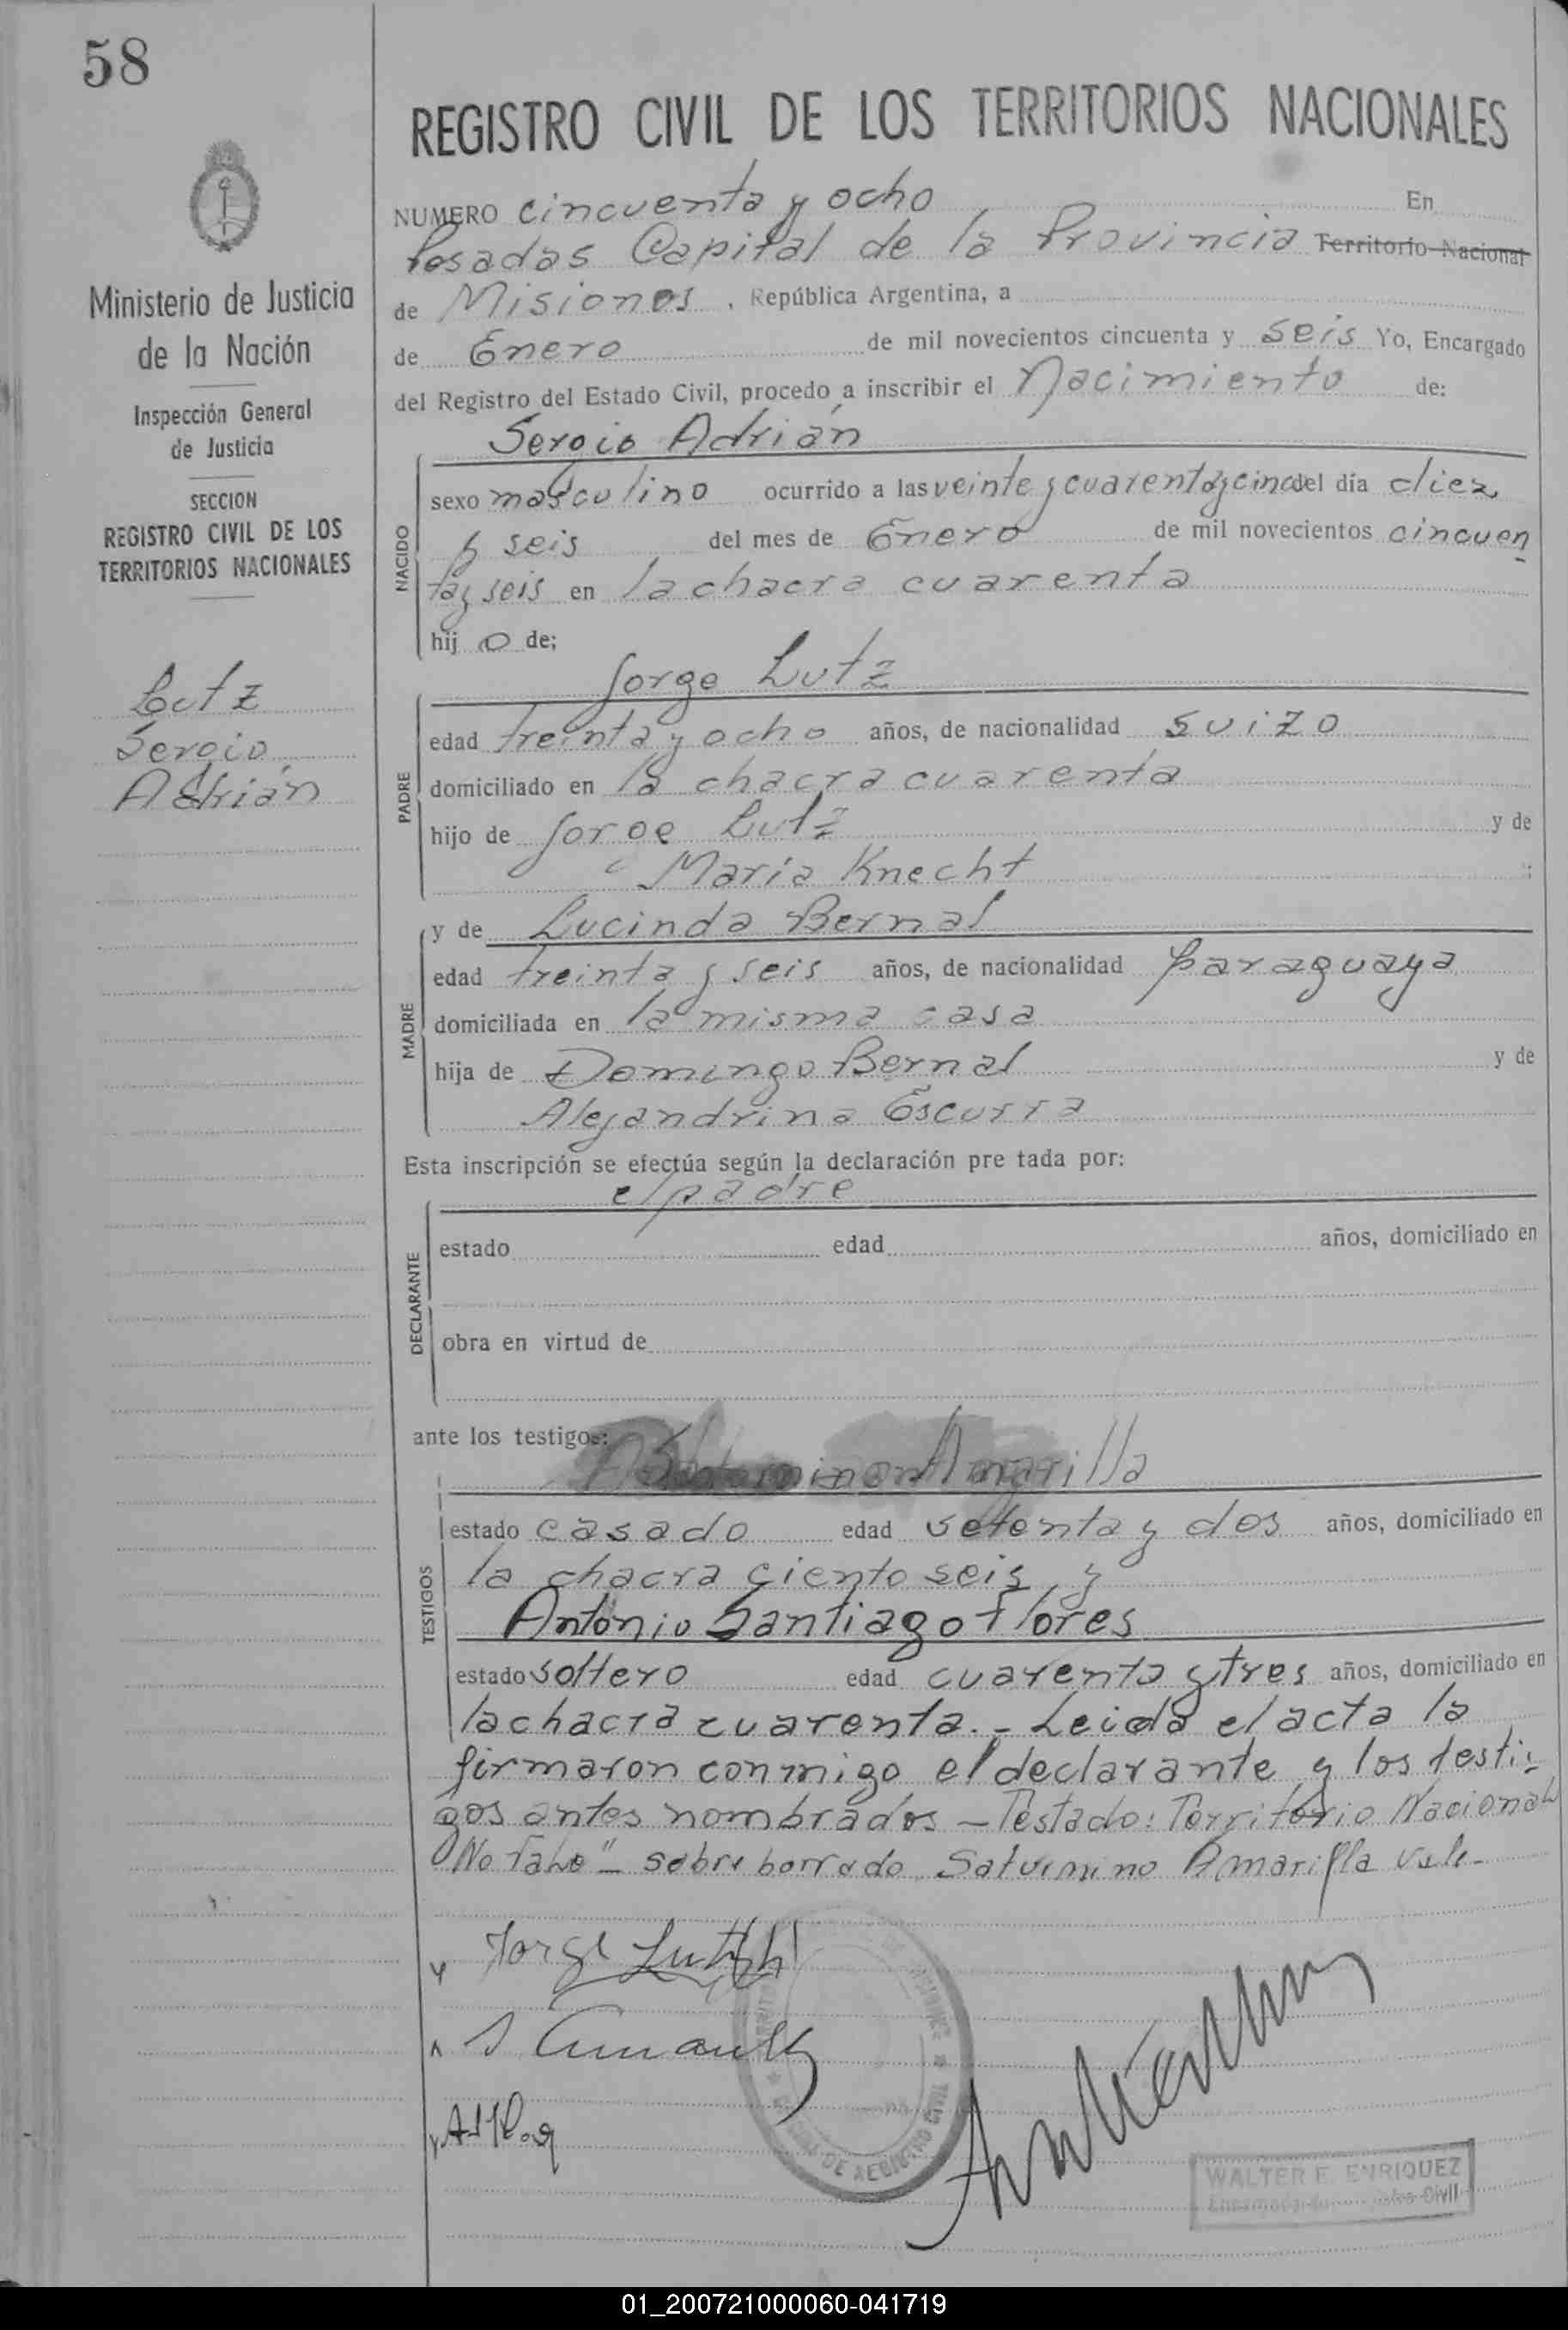 58
REGISTRO CIVIL DE LOS TERRITORIOS NACIONALES
NUMERO cincuenta y ocho En
Posadas Capital de la Provincia Territorio Nacional
de Misiones, República Argentina, a
de Enero de mil novecientos cincuenta y seis Yo, Encargado
del Registro del Estado Civil, procedo a inscribir el Nacimiento de:
Sergio Adrián
Ministerio de Justicia
de la Nación
Inspección General
de Justicia
SECCION
REGISTRO CIVIL DE LOS
TERRITORIOS NACIONALES
Lutz
Sergio
Adrián
NACIDO
sexo masculino ocurrido a las veinte y cuarenta y cinco del día diez
y seis del mes de Enero de mil novecientos cincuen
ta y seis en la chacra cuarenta
hijo de;
Jorge Lutz
PADRE
edad treinta y ocho años, de nacionalidad suizo
domiciliado en la chacra cuarenta
hijo de Jorge Lutz y de
Maria Knecht ;
MADRE
y de Lucinda Bernal
edad treinta y seis años, de nacionalidad paraguaya
domiciliada en la misma casa
hija de Domingo Bernal y de
Alejandrina Escurra
Esta inscripción se efectúa según la declaración pre tada por:
el padre
DECLARANTE
estado edad años, domiciliado en
obra en virtud de
ante los testigos:
Amarilla
TESTIGOS
estado casado edad setenta y dos años, domiciliado en
la chacra ciento seis y
Antonio Santiago Flores
estado soltero edad cuarenta y tres años, domiciliado en
la chacra cuarenta.- Leida el acta la
firmaron conmigo el declarante y los testi-
gos antes nombrados - Testado: Territorio Nacional
"No Vale" - sobre borrado Saturnino Amarilla vale-
Jorge Lutz
WALTER E. ENRIQUEZ
Civil
01_200721000060-041719